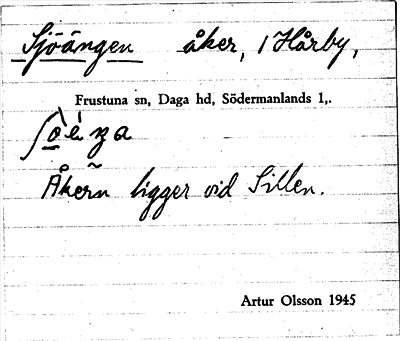 Sjöängen åker, 1 Hårby,
Frustuna sn, Daga hd, Södermanlands l.
Åkern ligger vid Sillen.
Artur Olsson 1945